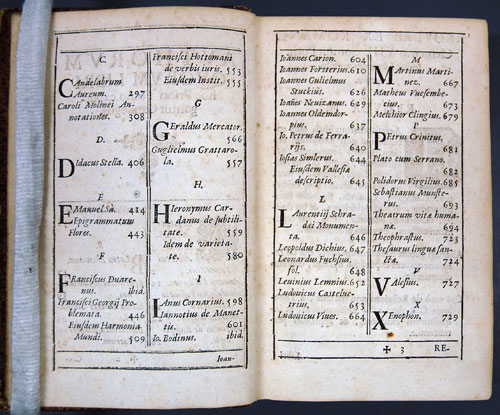 C
CAndelabrum
Aureum. 297
Caroli Molinei An-
notationes. 308
D.
DIdacus Stella. 406
E
EManuel Sa. 414
Epigrammatum
Flores. 443
F
FRanciscus Duare-
nus. ibid.
Francisci Georgij Pro-
blemata. 446
Eiusdem Harmonia
Mundi. 509
Francisci Hottomani
de verbis iuris. 553
Eiusdem Instit. 555
G
GEraldus Mercator.
566
Guglielmus Grattaro-
la. 557
H.
HIeronymus Car-
danus de subtili-
tate. 559
Idem de varieta-
te. 580
I
IAnus Cornarius. 598
Iannotius de Manet-
tis. 601
Io. Bodinus. ibid.
Ioan-
Ioannes Carion. 604
Ioannes Forsterius. 610
Ioannes Gulielmus
Stuckius. 626
Ioānes Nevizanus. 629
Ioannes Oldendor-
pius. 637
Io. Petrus de Ferra-
rijs. 640
Iosias Simlerus. 644
Eiusdem Vallesiæ
descriptio. 645
L
LAurentij Schra-
dei Monumen-
ta. 646
Leopoldus Dichius. 647
Leonardus Fuchsius.
fol. 648
Levinius Lemnius. 652
Ludouicus Castelue-
trius. 653
Ludouicus Viues. 664
M
MArtinus Marti-
nez. 667
Matheus Vuesembe-
cius. 673
Melchior Clingius. 679
P
PEtrus Crinitus.
681
Plato cum Serrano.
682
Polidorus Virgilius. 685
Sebastianus Munste-
rus. 693
Theatrum vitæ huma-
næ. 694
Theophrastus. 723
Thesaurus linguæ san-
ctæ. 724
V
VAlesius. 727
X
XEnophon. 729
✠ 3 RE-